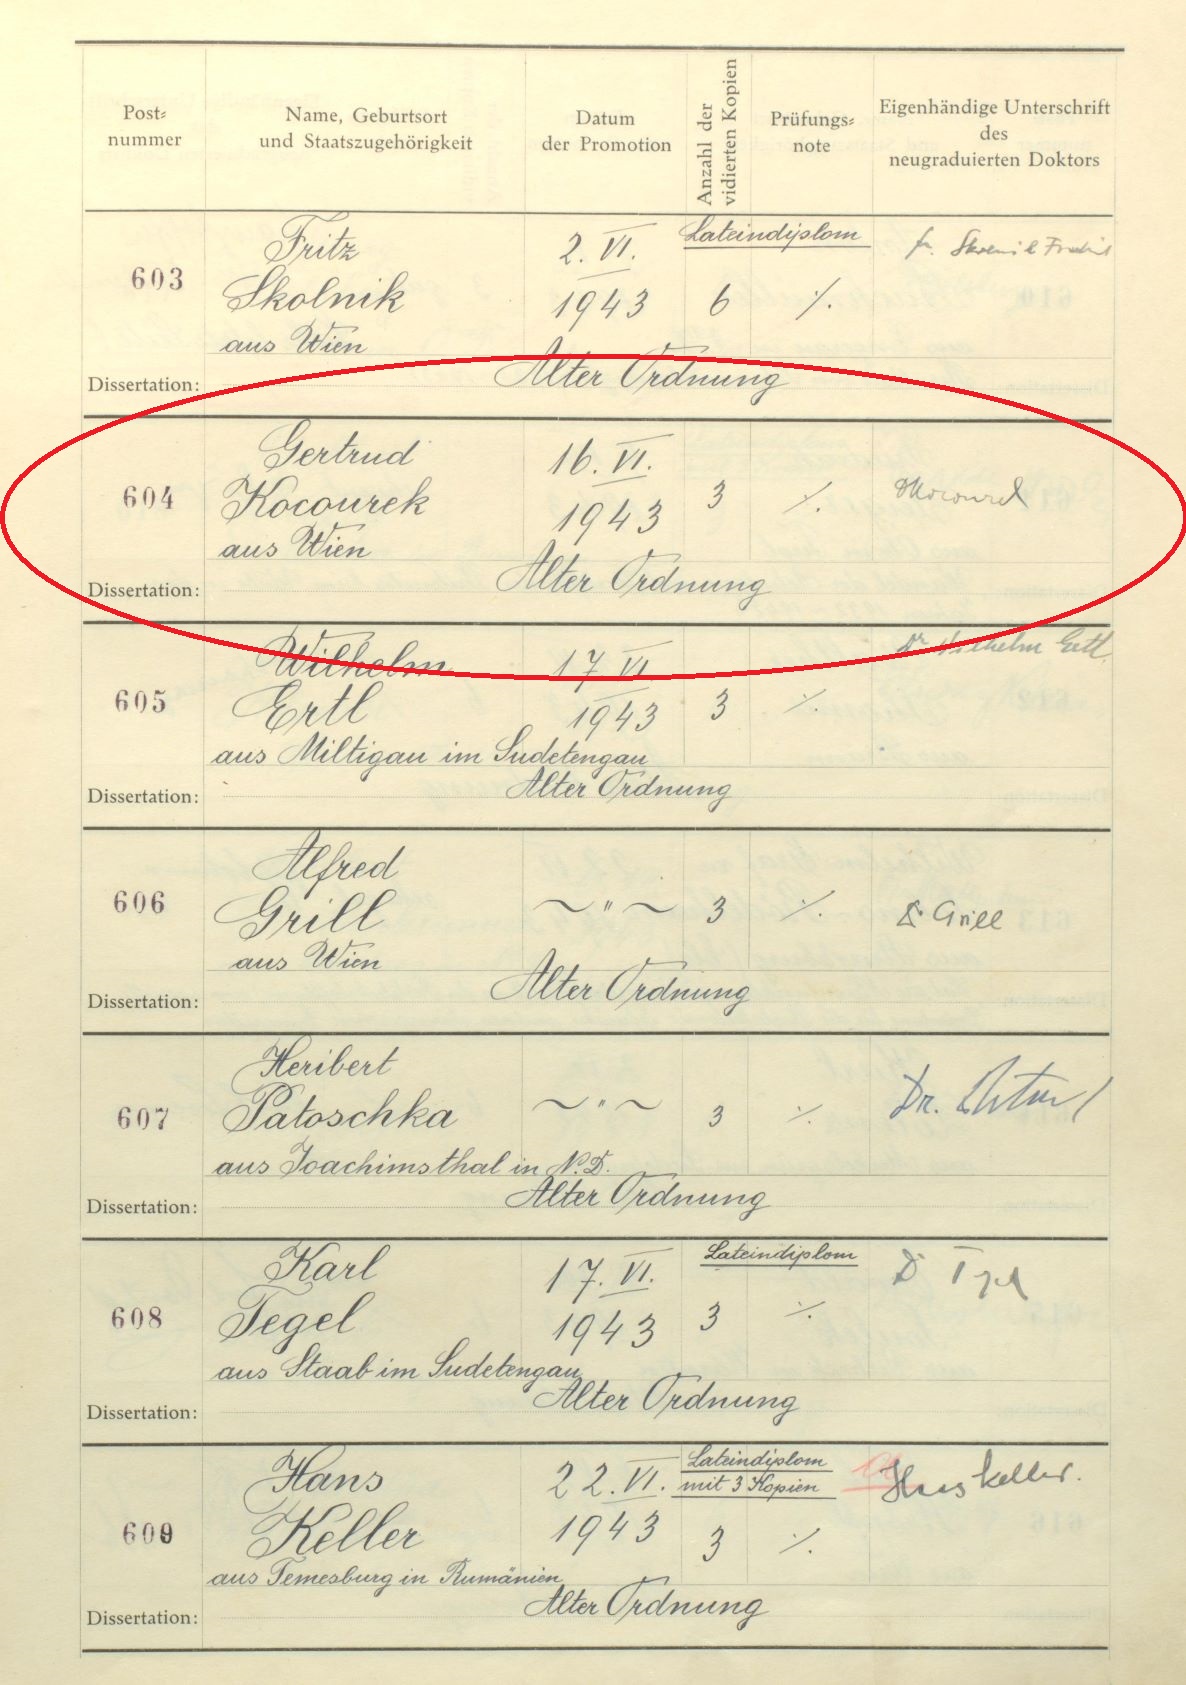 Post-
nummer
Name, Geburtsort
und Staatszugehörigkeit
Datum
der Promotion
Anzahl der
vidierten Kopien
Prüfungs-
note
Eigenhändige Unterschrift
des
neugraduierten Doktors
603
Fritz
Skolnik
aus Wien
2. VI.
1943
Lateindiplom
6
./.
Dissertation:
Alter Ordnung
604
Gertrud
Kocourek
aus Wien
16. VI.
1943
3
./.
Kocourek
Dissertation:
Alter Ordnung
605
Wilhelm
Ertl
aus Miltigau im Sudetengau
17 VI.
1943
3
./.
Dr Wilhelm Ertl.
Dissertation:
Alter Ordnung
606
Alfred
Grill
aus Wien
~ " ~
3
./.
Dr Grill
Dissertation:
Alter Ordnung
607
Heribert
Patoschka
aus Joachimsthal in N.D.
~ " ~
3
./.
Dr.
Dissertation:
Alter Ordnung
608
Karl
Tegel
aus Staab im Sudetengau
17. VI.
1943
Lateindiplom
3
./.
Dr Tegel
Dissertation:
Alter Ordnung
609
Hans
Keller
aus Temesburg in Rumänien
22. VI.
1943
Lateindiplom
mit 3 Kopien
3
./.
Hans Keller.
Dissertation:
Alter Ordnung